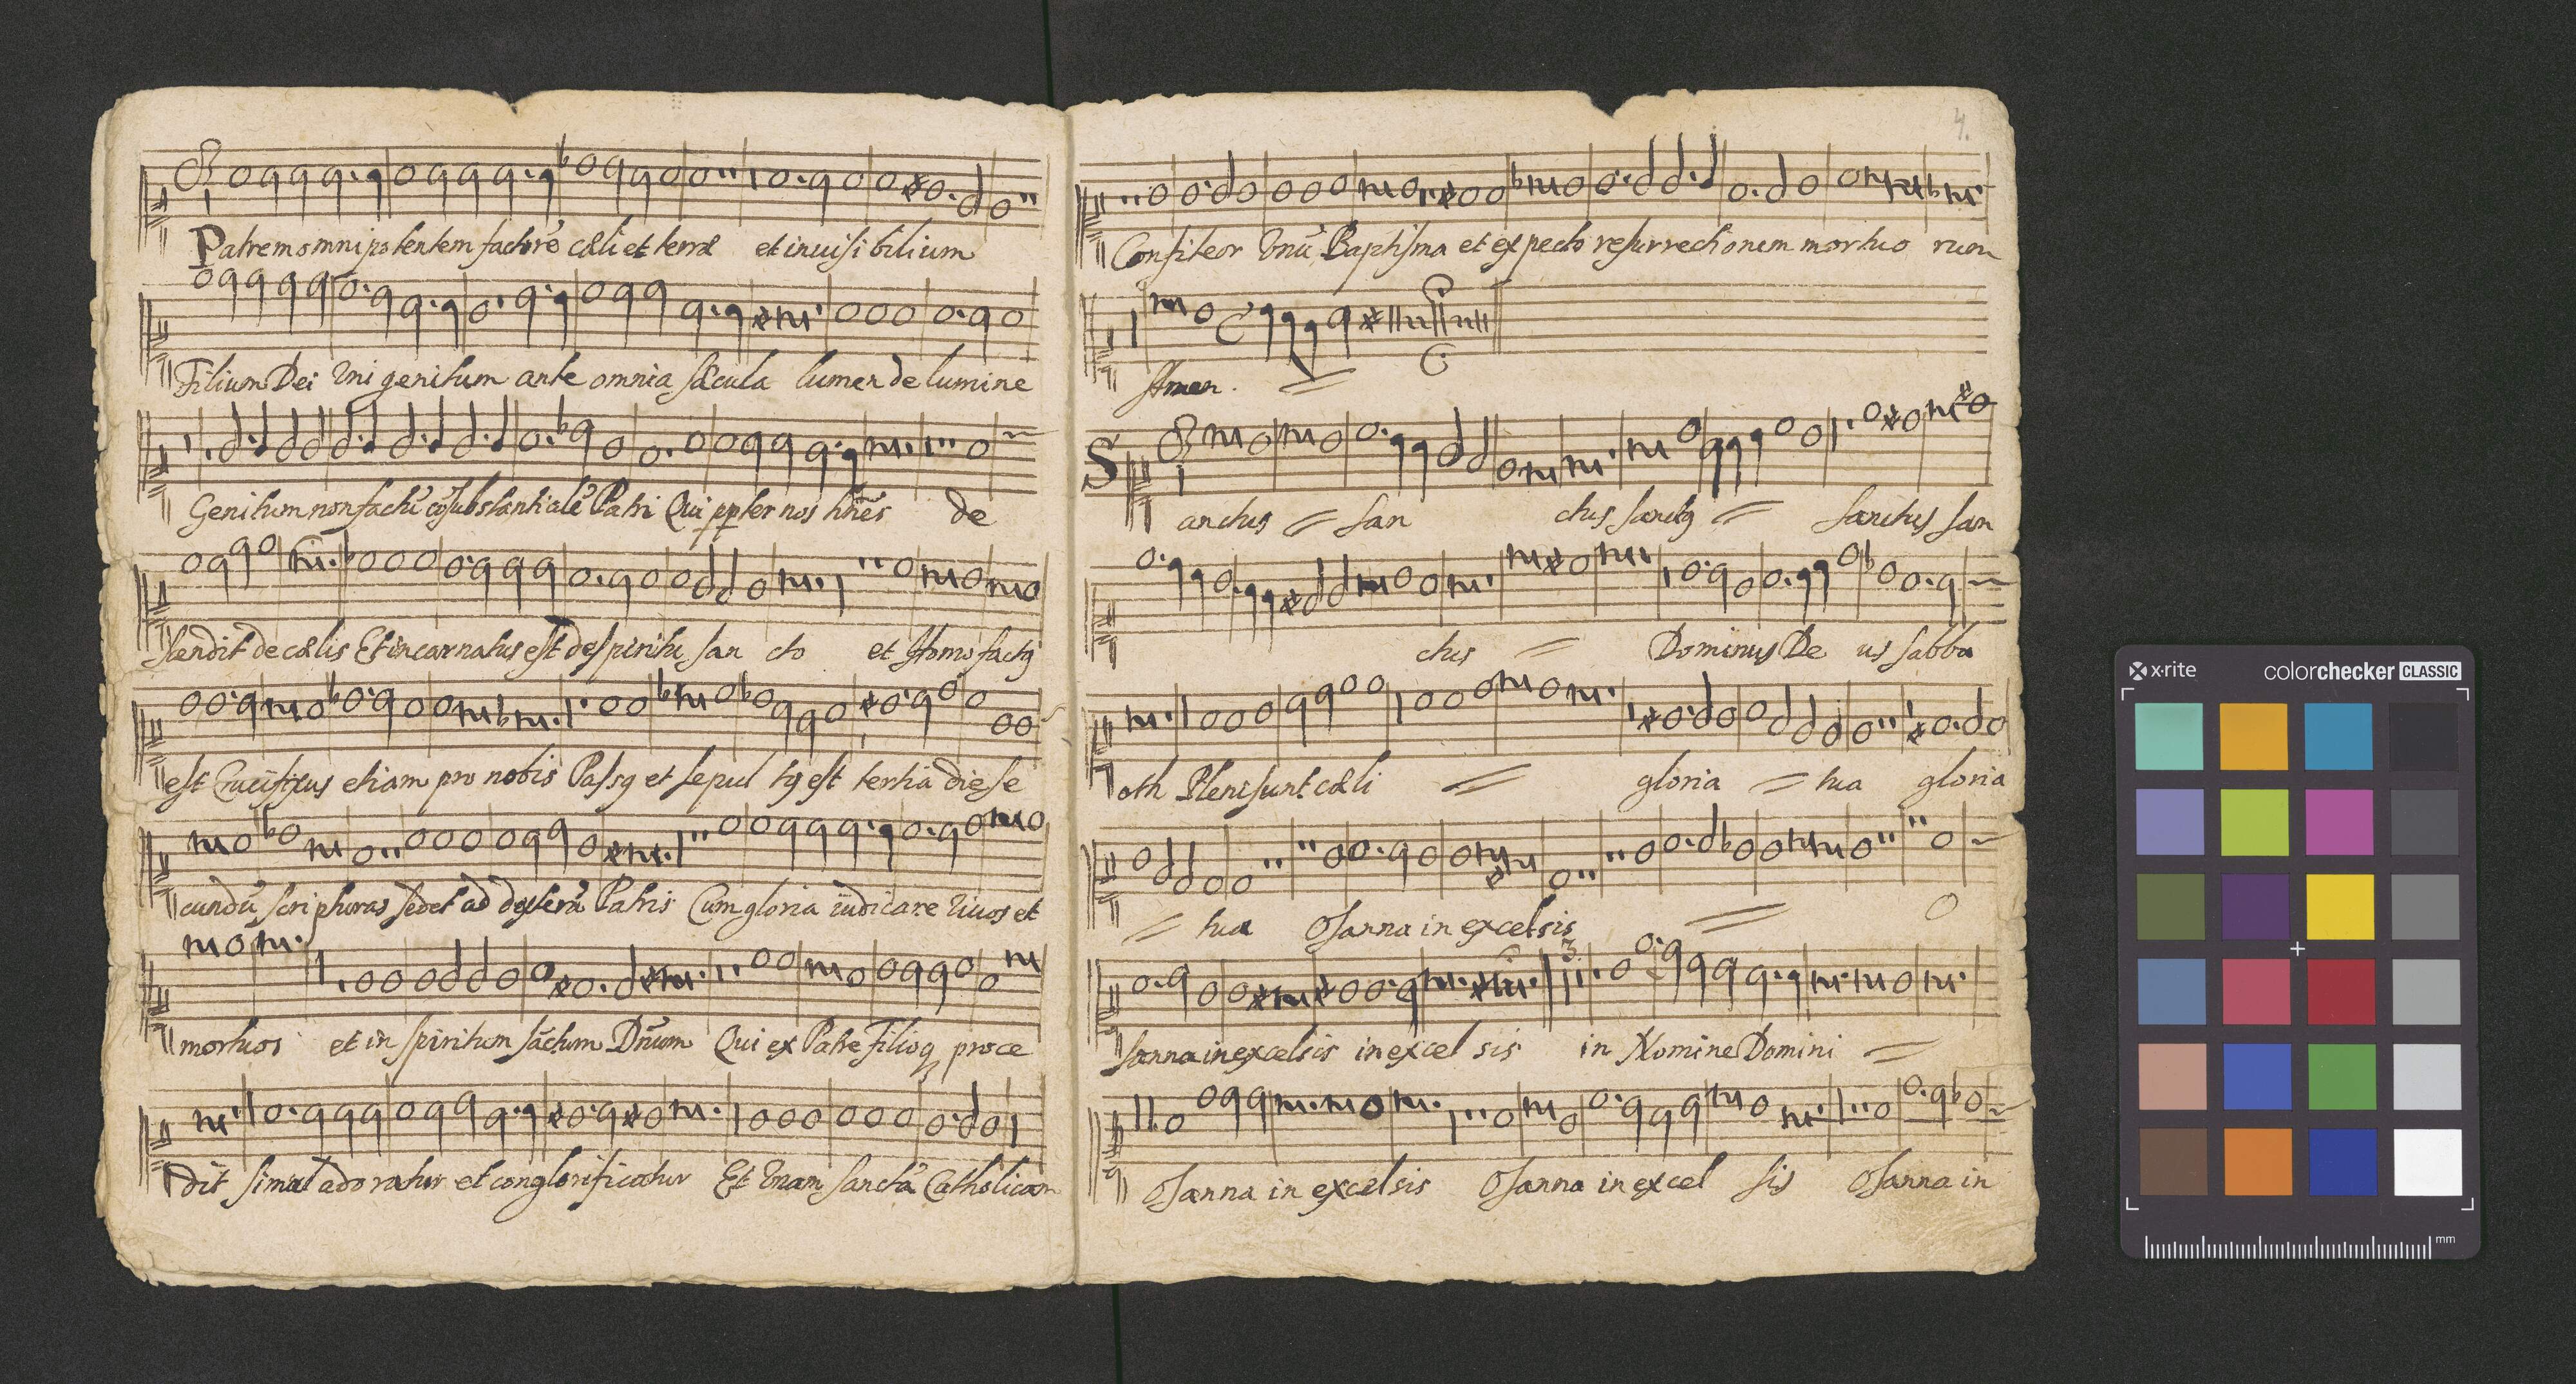 Patrem omnipotentem factorē cæli et terræ et inuisibilium
Filium Dei Vnigenitum ante omnia sæcula lumen de lumine
Genitum non factū cōsubstantialē Patri Qui ppter nos hñes de
scendit de cælis Et incarnatus est de spiritu san cto et Homo factus
est Crucifixus etiam pro nobis Passus et sepul tus est tertia die se
cundū scripturas sedet ad dexterā Patris Cum gloria iudicare Viuos et
mortuos et in spiritum sāctum Dñum Qui ex Patre Filioq proce
dit simul adoratur et conglorificatur Et Vnam sanctā Catholicam
4.
Confiteor Vnū Baptisma et expecto resurrectionem mortuo rum
Amen.
Sanctus san ctus sanctus Sanctus san
ctus Dominus De us sabba
oth Pleni sunt cæli gloria tua gloria
tua Osanna in excelsis O
3
sanna in excelsis in excel sis in Nomine Domini
Osanna in excelsis Osanna in excel sis Osanna in
x-rite colorchecker CLASSIC
mm